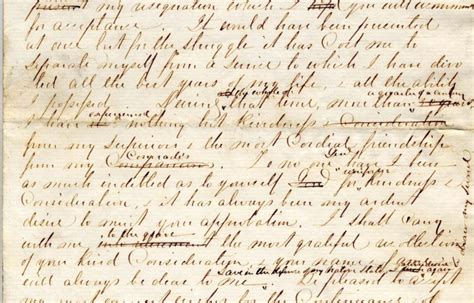 present my resignation which I hope you will recommend
for acceptance. It would have been presented
at once but for the struggle it has cost me to
separate myself from a service to which I have devo
ted all the best years of my life, & all the ability
the whole of a quarter of a century
I possessed. During that time, more than
experienced
I have nothing but kindness & Consideration
from my Superiors & the most Cordial friendship
Comrades Genl
from my Companions. To no one have I been
uniform
as much indebted as to yourself for kindness &
Consideration, & it has always been my ardent
desire to merit your approbation. I shall carry
to the grave
with me the most grateful recollection
of your kind Consideration, & your name & fame
Save in the defence of my native State
will always be dear to me. Be pleased to accept
my most earnest wishes for the Continuance of